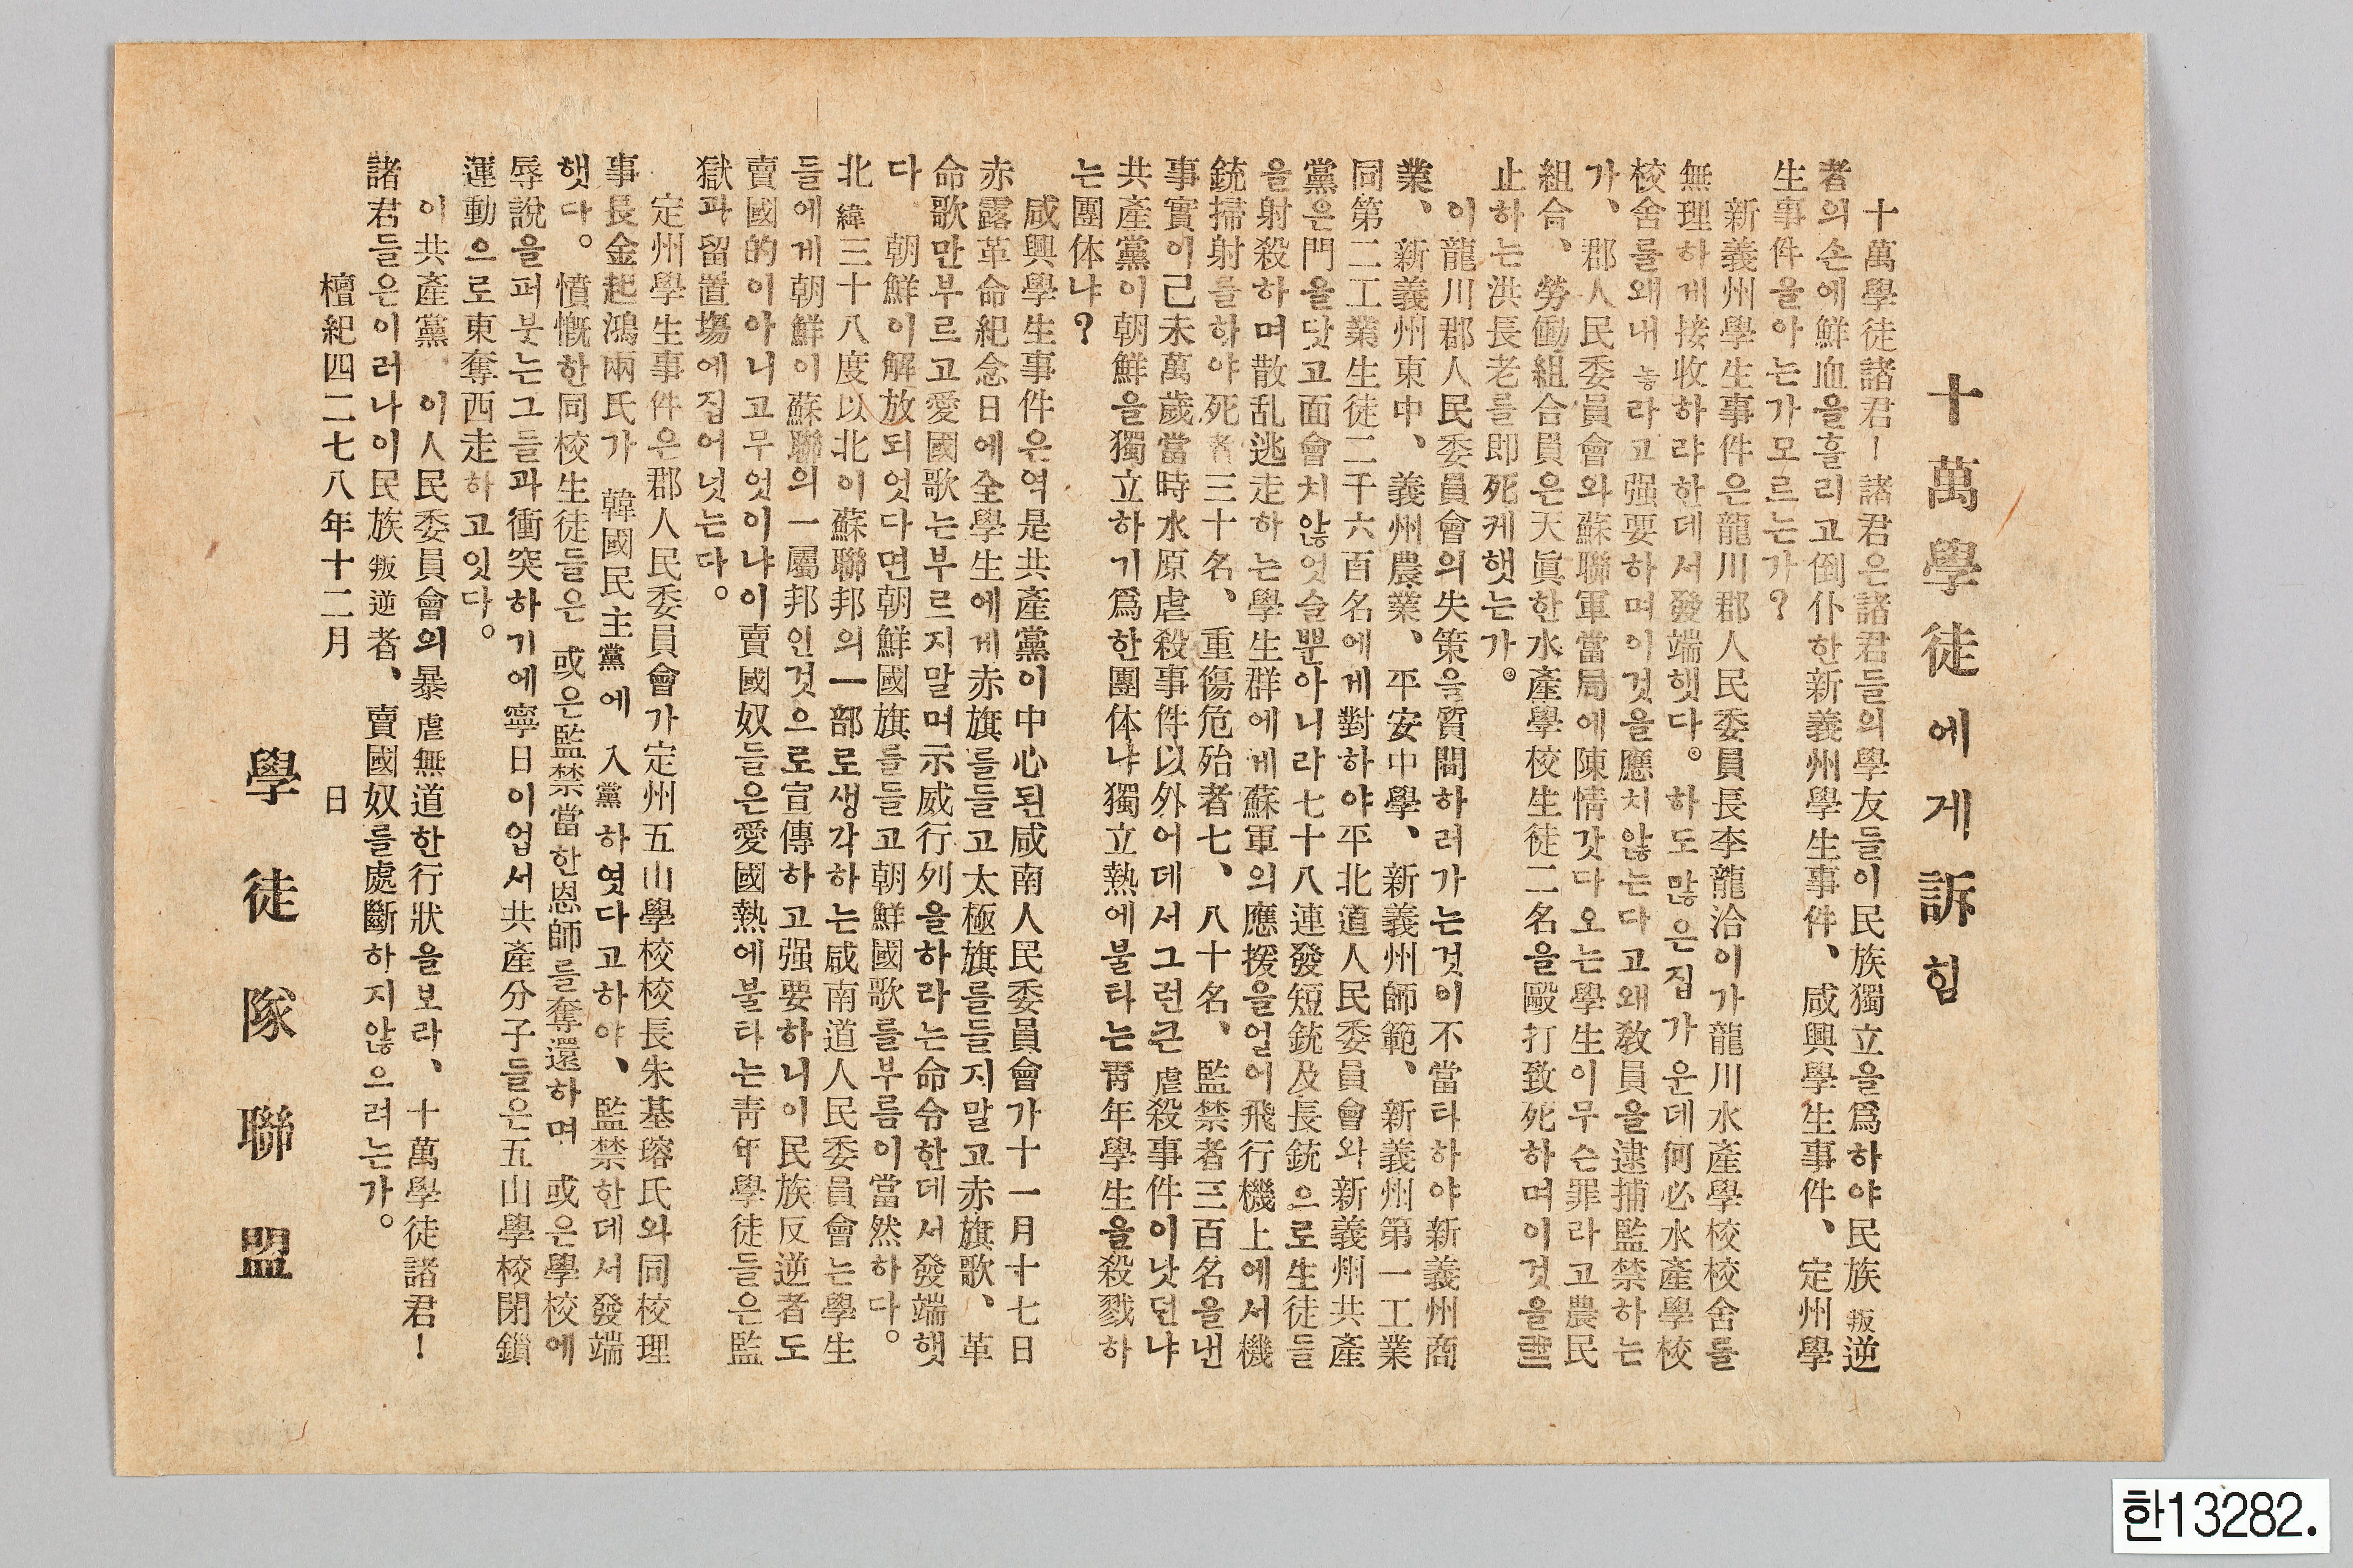 十萬學徒에게訴힘
十萬學徒諸君!諸君은諸君들의學友들이民族獨立을爲하야民族叛逆
者의손에鮮血을흘리고倒仆한新義州學生事件、咸興學生事件、定州學
生事件을아는가모르는가?
新義州學生事件은龍川郡人民委員長李龍洽이가龍川水產學校校舍들
無理하게接收하랴한데서發端햇다。하도많은집가운데何必水產學校
校舍를왜내놓라고强要하며이것을應치않는다고왜敎員을逮捕監禁하는
가、郡人民委員會와蘇聯軍當局에陳情갓다오는學生이무슨罪라고農民
組合、勞働組合員은天眞한水產學校生徒二名을毆打致死하며이것을
止하는洪長老를即死케햇는가。
이龍川郡人民委員會의失策을質問하러가는것이不當타하야新義州商
業、新義州東中、義州農業、平安中學、新義州師範、新義州第一工業
同第二工業生徒二千六百名에게對하야平北道人民委員會와新義州共產
黨은門을닷고面會치않엇슬뿐아니라七十八連發短銃及長銃으로生徒들
을射殺하며散乱逃走하는學生群에게蘇軍의應援을얻어飛行機上에서機
銃掃射를하야死者三十名、重傷危殆者七、八十名、監禁者三百名을낸
事實이己未萬歲當時水原虐殺事件以外어데서그런큰虐殺事件이낫던냐
共產黨이朝鮮을獨立하기爲한團体냐獨立熱에불타는靑年學生을殺戮하
는團体냐?
咸興學生事件은역是共產黨이中心된咸南人民委員會가十一月十七日
赤露革命紀念日에全學生에게赤旗를들고太極旗를들지말고赤旗歌、革
命歌만부르고愛國歌는부르지말며示威行列을하라는命令한데서發端햇
다 朝鮮이解放되엇다면朝鮮國旗를들고朝鮮國歌를부름이當然하다。
北緯三十八度以北이蘇聯邦의一部로생각하는咸南道人民委員會는學生
들에게朝鮮이蘇聯의一屬邦인것으로宣傳하고强要하니이民族反逆者도
賣國的이아니고무엇이냐이賣國奴들은愛國熱에불타는靑年學徒들은監
獄과留置塲에집어넛는다。
定州學生事件은郡人民委員會가定州五山學校校長朱基瑢氏와同校理
事長金起鴻兩氏가 韓國民主黨에 入黨하엿다고하야、監禁한데서發端
햇다。憤慨한同校生徒들은 或은監禁當한恩師를奪還하며 或은學校에
辱說을퍼붓는그들과衝突하기에寧日이업서共產分子들은五山學校閉鎖
運動으로東奪西走하고잇다。
이共產黨 이人民委員會의暴虐無道한行狀을보라、十萬學徒諸君!
諸君들은이러나이民族叛逆者、賣國奴를處斷하지않으려는가。
檀紀四二七八年十二月 日
學徒隊聯盟
한13282.